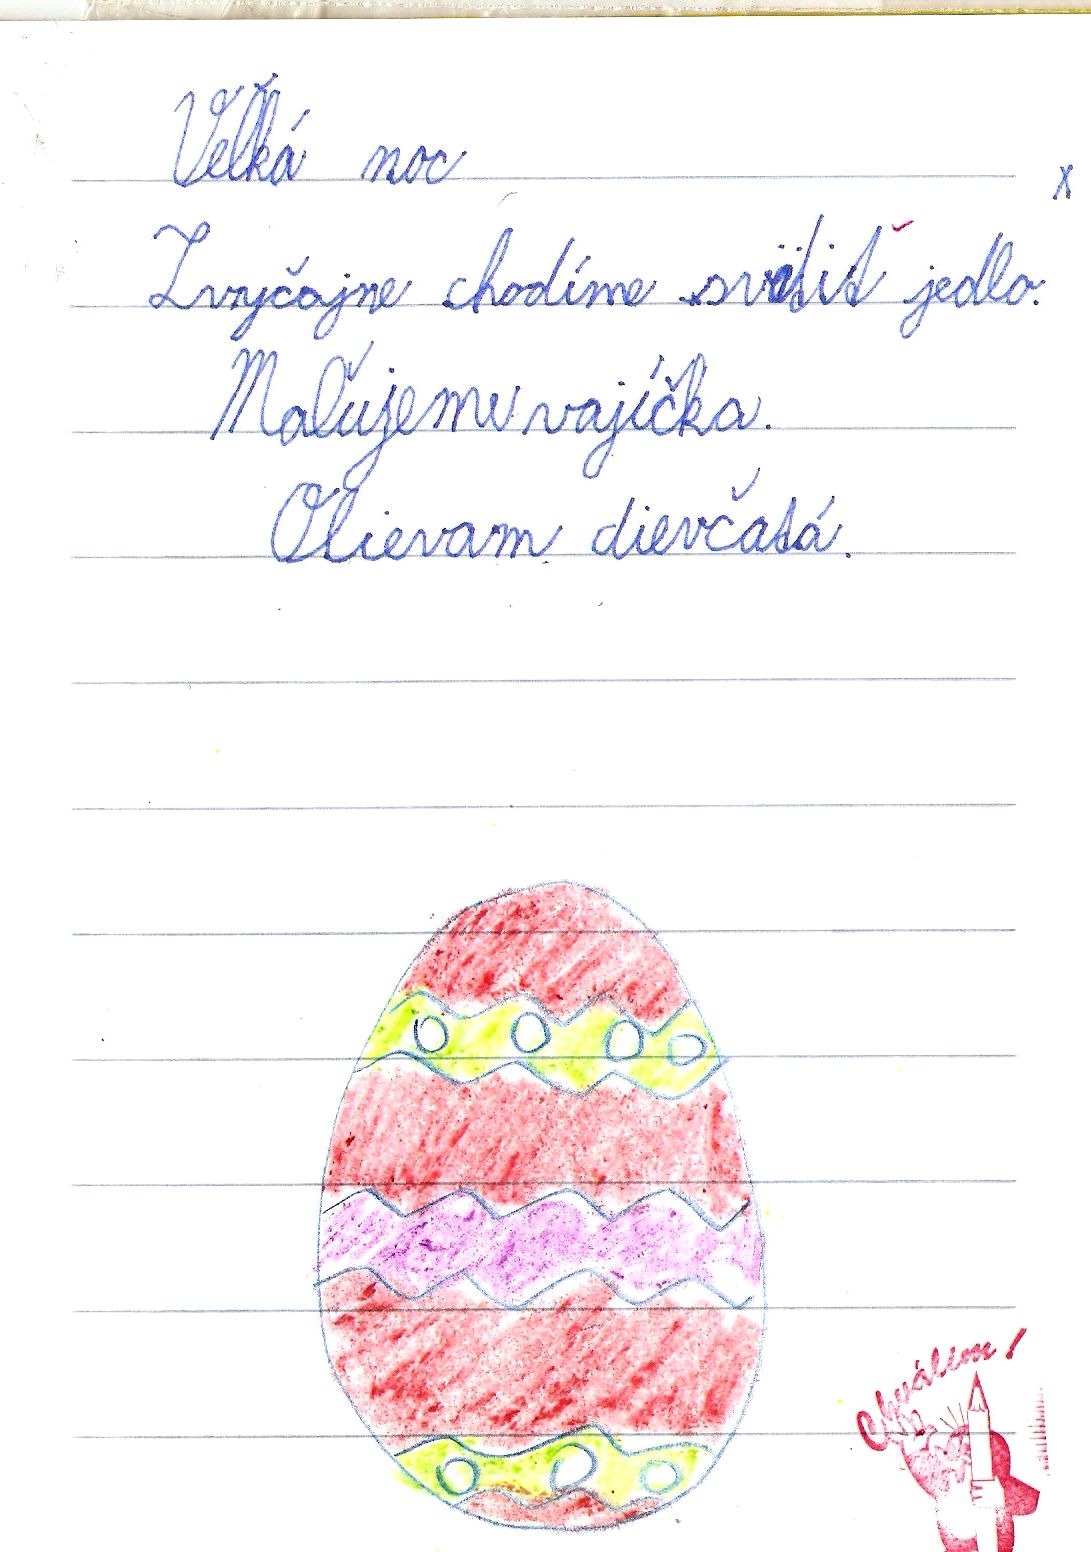 Veľká noc
x
Zvyčajne chodíme svätiť jedlo.
Maľujeme vajíčka.
Olievam dievčatá.
Chválim!